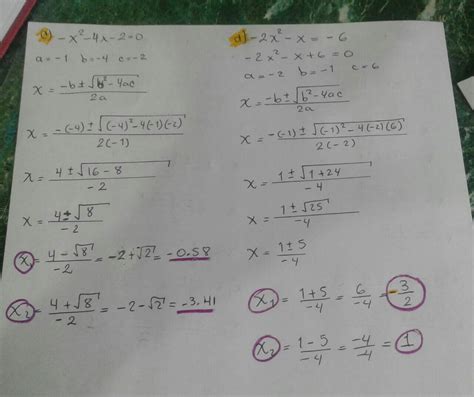 a) -x²-4x-2=0
a=-1 b=-4 c=-2
x = (-b±√(b²-4ac))/(2a)
x = (-(-4)±√((-4)²-4(-1)(-2)))/(2(-1))
x = (4±√(16-8))/(-2)
x = (4±√8)/(-2)
x = (4-√8)/(-2) = -2+√2 = -0.58
x₂ = (4+√8)/(-2) = -2-√2 = -3.41
d) -2x²-x=-6
-2x²-x+6=0
a=-2 b=-1 c=6
x = (-b±√(b²-4ac))/(2a)
x = (-(-1)±√((-1)²-4(-2)(6)))/(2(-2))
x = (1±√(1+24))/(-4)
x = (1±√25)/(-4)
x = (1±5)/(-4)
x₁ = (1+5)/(-4) = 6/(-4) = -3/2
x₂ = (1-5)/(-4) = -4/-4 = 1